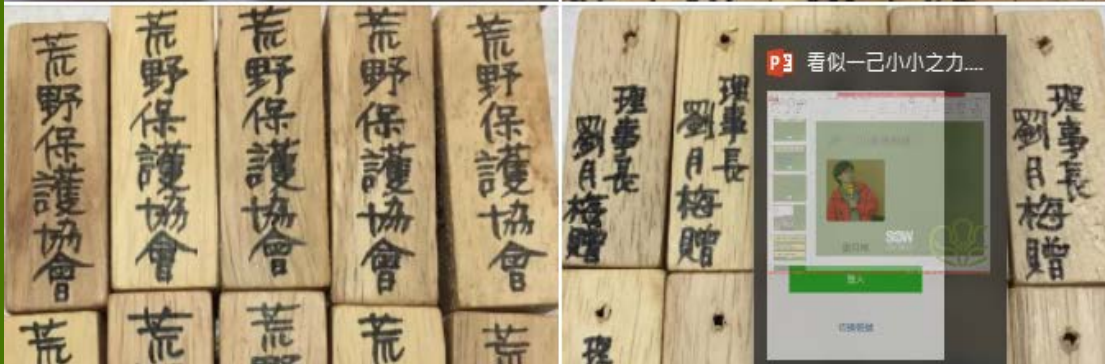 荒野保護協會
荒野保護協會
荒野保護協會
荒野保護協會
荒野保護協會
荒
荒
荒野
荒
荒
理事長
劉月梅贈
理事長
劉月梅贈
理事長
劉月梅贈
理
看似一己小小之力....
SOW
登入
切換帳號